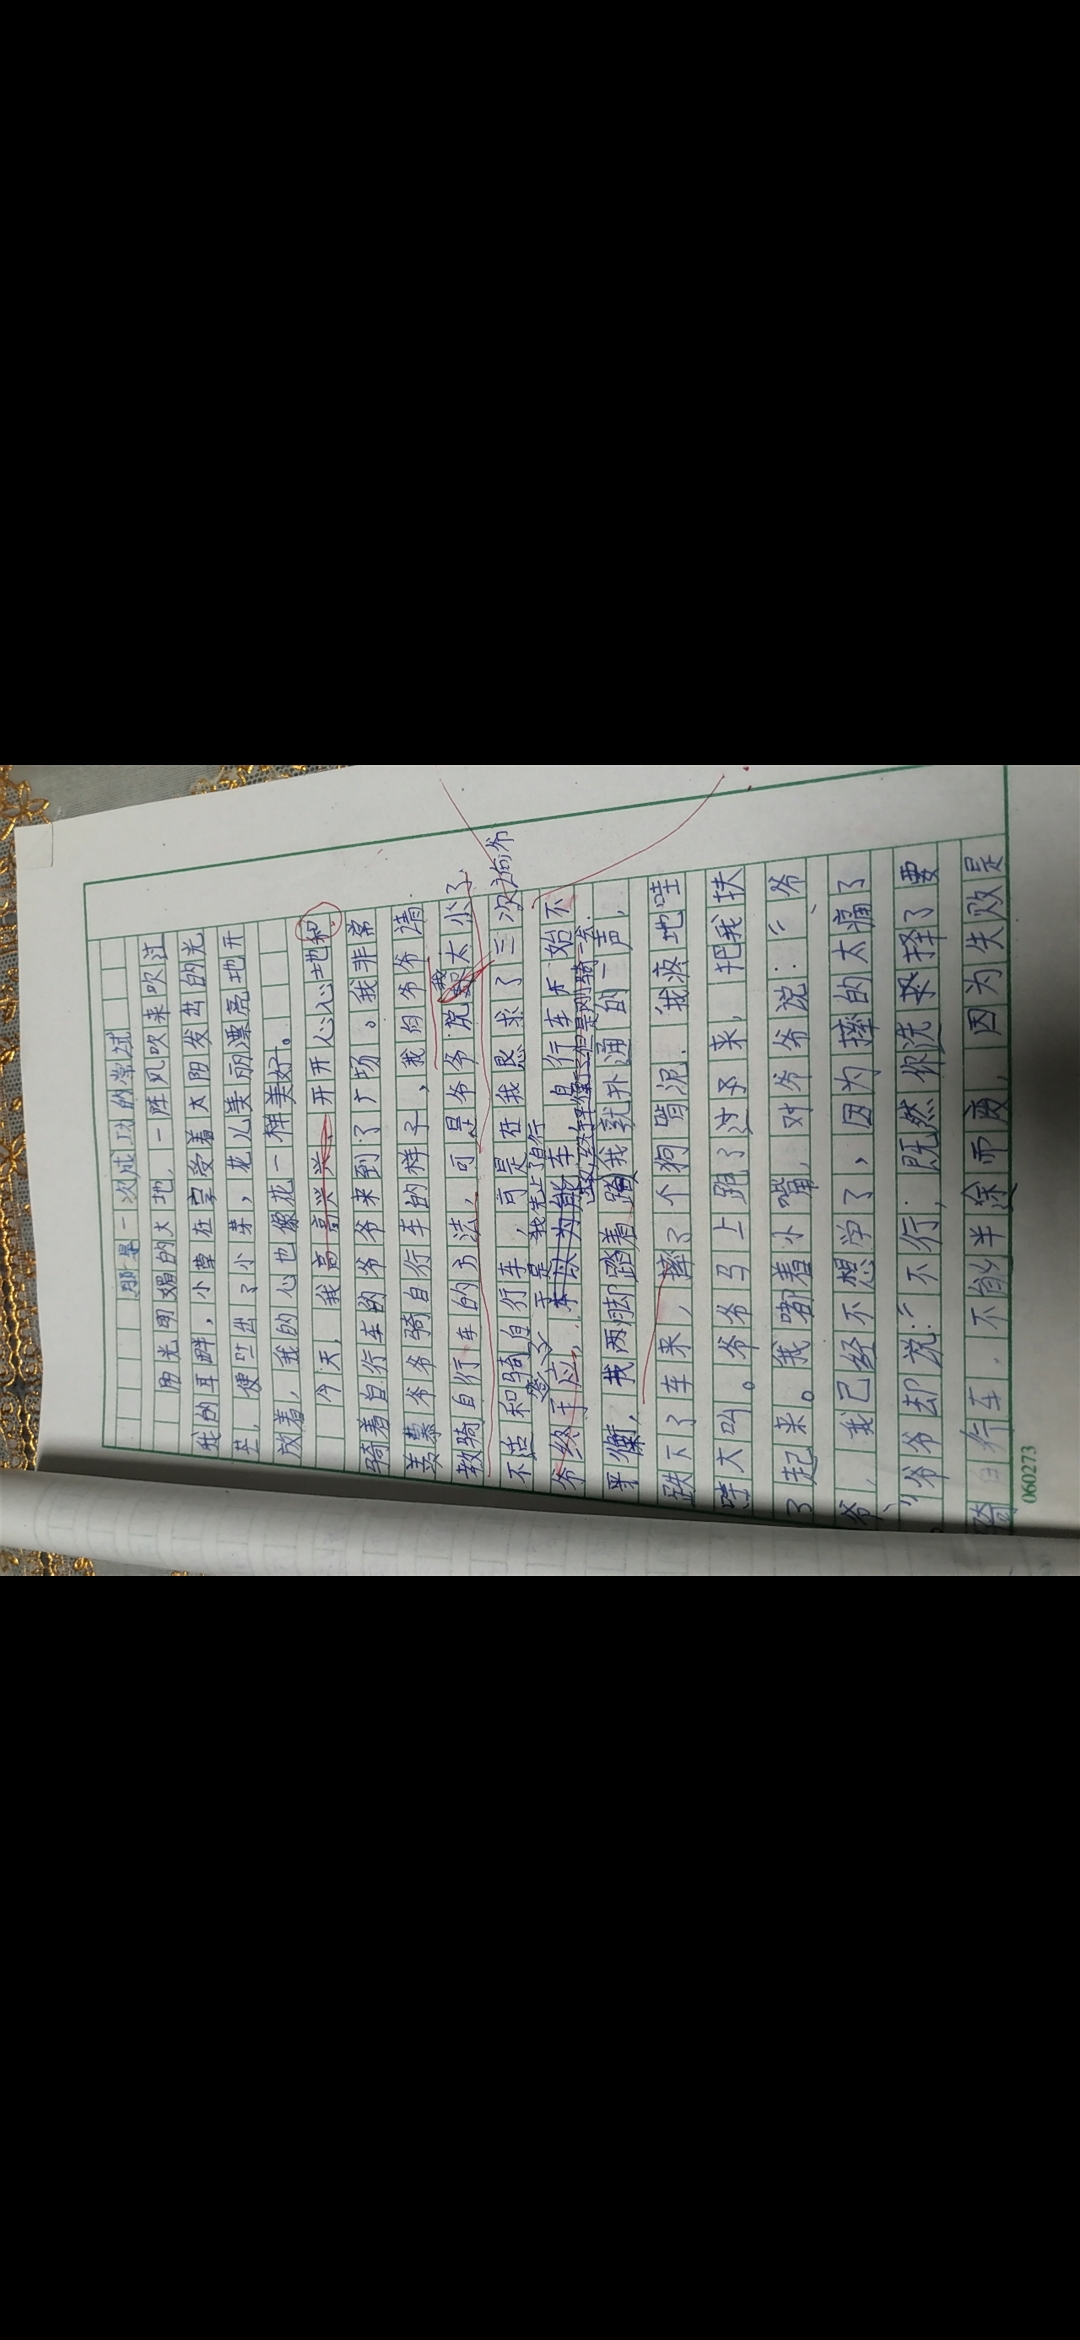 那是一次成功的尝试
阳光明媚的大地,一阵风吹来吹过
我的耳畔,小草在享受着太阳发出的光
芒,便吐出了小芽,花儿美丽漂亮地开
放着,我的心也像花一样美好。
今天,我高高兴兴、开开心心地和
骑着自行车的爷爷来到了广场。我非常
羡慕爷爷骑自行车的样子,我向爷爷请
教骑自行车的方法,可是爷爷说我太小了,
不适和骑自行车,可是在我恳求了三次,爷爷
于是我先上了自行
爷终于应,自行车开始不
平衡,我两脚踏着蹬我就扑通的一声,
跌下了车来,摔了个狗啃泥,我疼地哇
哇大叫。爷爷马上跑了过来,把我扶
了起来。我嘟着小嘴,对爷爷说:“爷
爷,我已经不想学了,因为摔的太痛了
。”爷爷却说:“不行,既然你选择了要
骑自行车,不能半途而废,因为失败是
060273